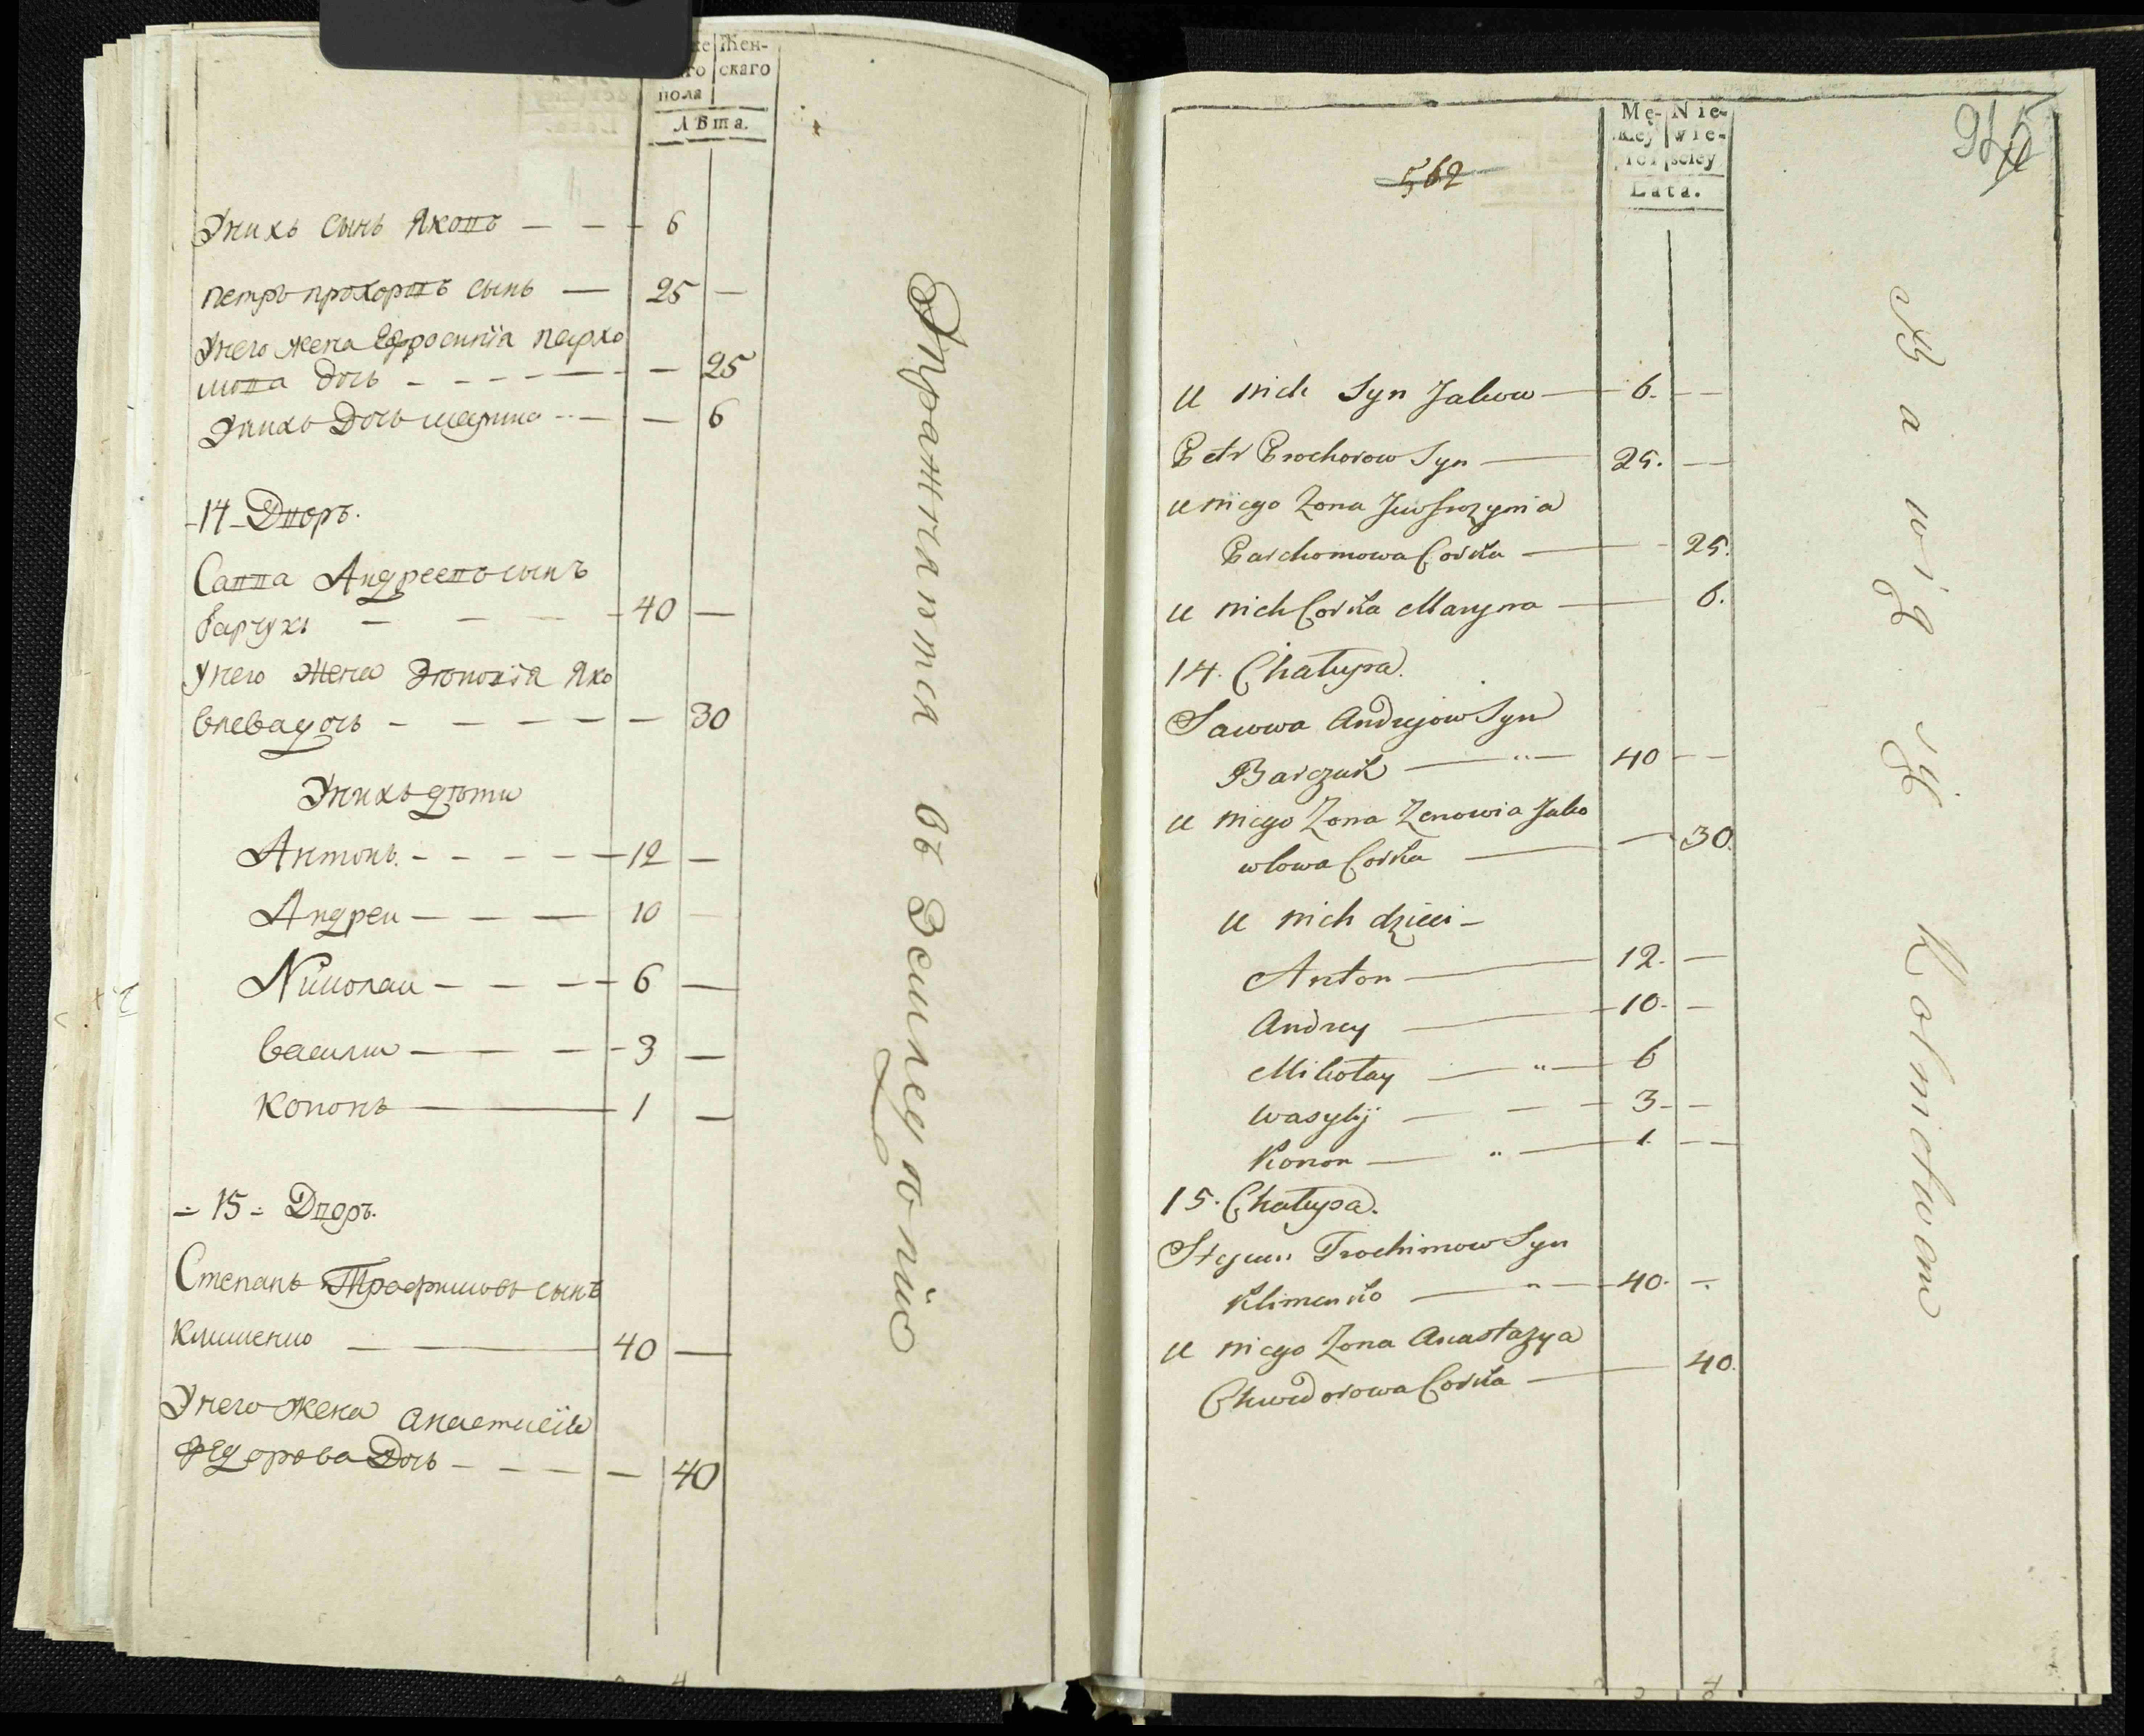 Жен-
скаго
пола
Лѣта.
Унихъ сынъ Яковъ — — — 6
петръ прохоровъ сынъ — 25 —
Унего жена Ефросиніа пархо
мова дочь — — — — 25
Унихъ Дочь марина — — 6
14 Дворъ.
Савва Андреевъ сынъ
барчукъ — — — 40 —
Унего жена Зѣновія Яко
влева дочь — — — — 30
Унихъ дѣти
Антонъ. — — — 12 —
Андреи — — — 10 —
Николаи — — — 6 —
василии — — — 3 —
кононъ — 1 —
15 Дворъ.
Степанъ Трофимовъ сынъ
клименко — 40 —
Унего жена анастасіа
Федорова Дочь — — — — 40
Упражняются въ Земледѣліи
562
Mę- Nie-
wie-
sciey
Lata.
u nich Syn Jakow — 6. —
Petr Prochorow Syn — 25. —
u niego Zona Jewfrozynia
Parchomowa Corka — 25.
u nich Corka Maryna — 6.
14. Chałupa.
Sawwa Andrejow Syn
Barczuk — 40 —
u niego Zona Zenowia Jako
wlowa Corka — — 30.
u nich dzieci —
Anton — 12. —
Andrey — 10. —
Mikołay — 6
Wasylij — — — 3. —
Konon — 1. —
15. Chałupa.
Stepan Trochimow Syn
Klimenko — 40. —
u niego Zona Anastazya
Chwedorowa Corka — 40.
Bawią się Rolnictwem